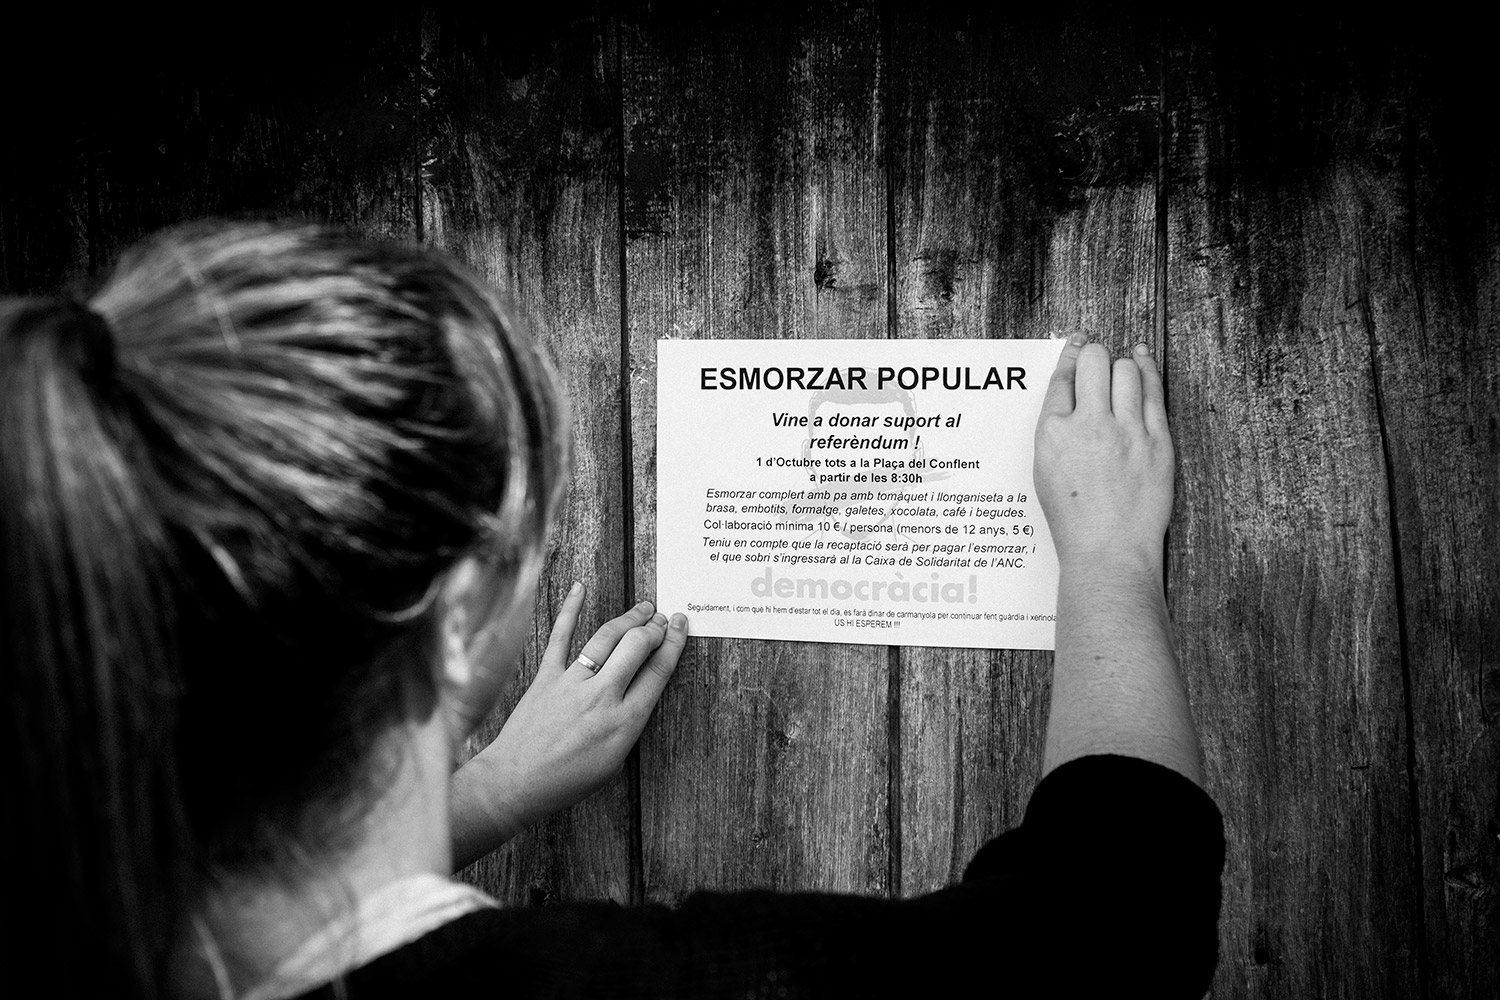 ESMORZAR POPULAR
Vine a donar suport al
referèndum !
1 d'Octubre tots a la Plaça del Conflent
a partir de les 8:30h
Esmorzar complert amb pa amb tomàquet i llonganiseta a la
brasa, embotits, formatge, galetes, xocolata, café i begudes.
Col·laboració mínima 10 € / persona (menors de 12 anys, 5 €)
Teniu en compte que la recaptació serà per pagar l'esmorzar, i
el que sobri s'ingressarà al la Caixa de Solidaritat de l'ANC.
democràcia!
Seguidament, i com que hi hem d'estar tot el dia, es farà dinar de carmanyola per continuar fent guàrdia i xerinola
US HI ESPEREM !!!